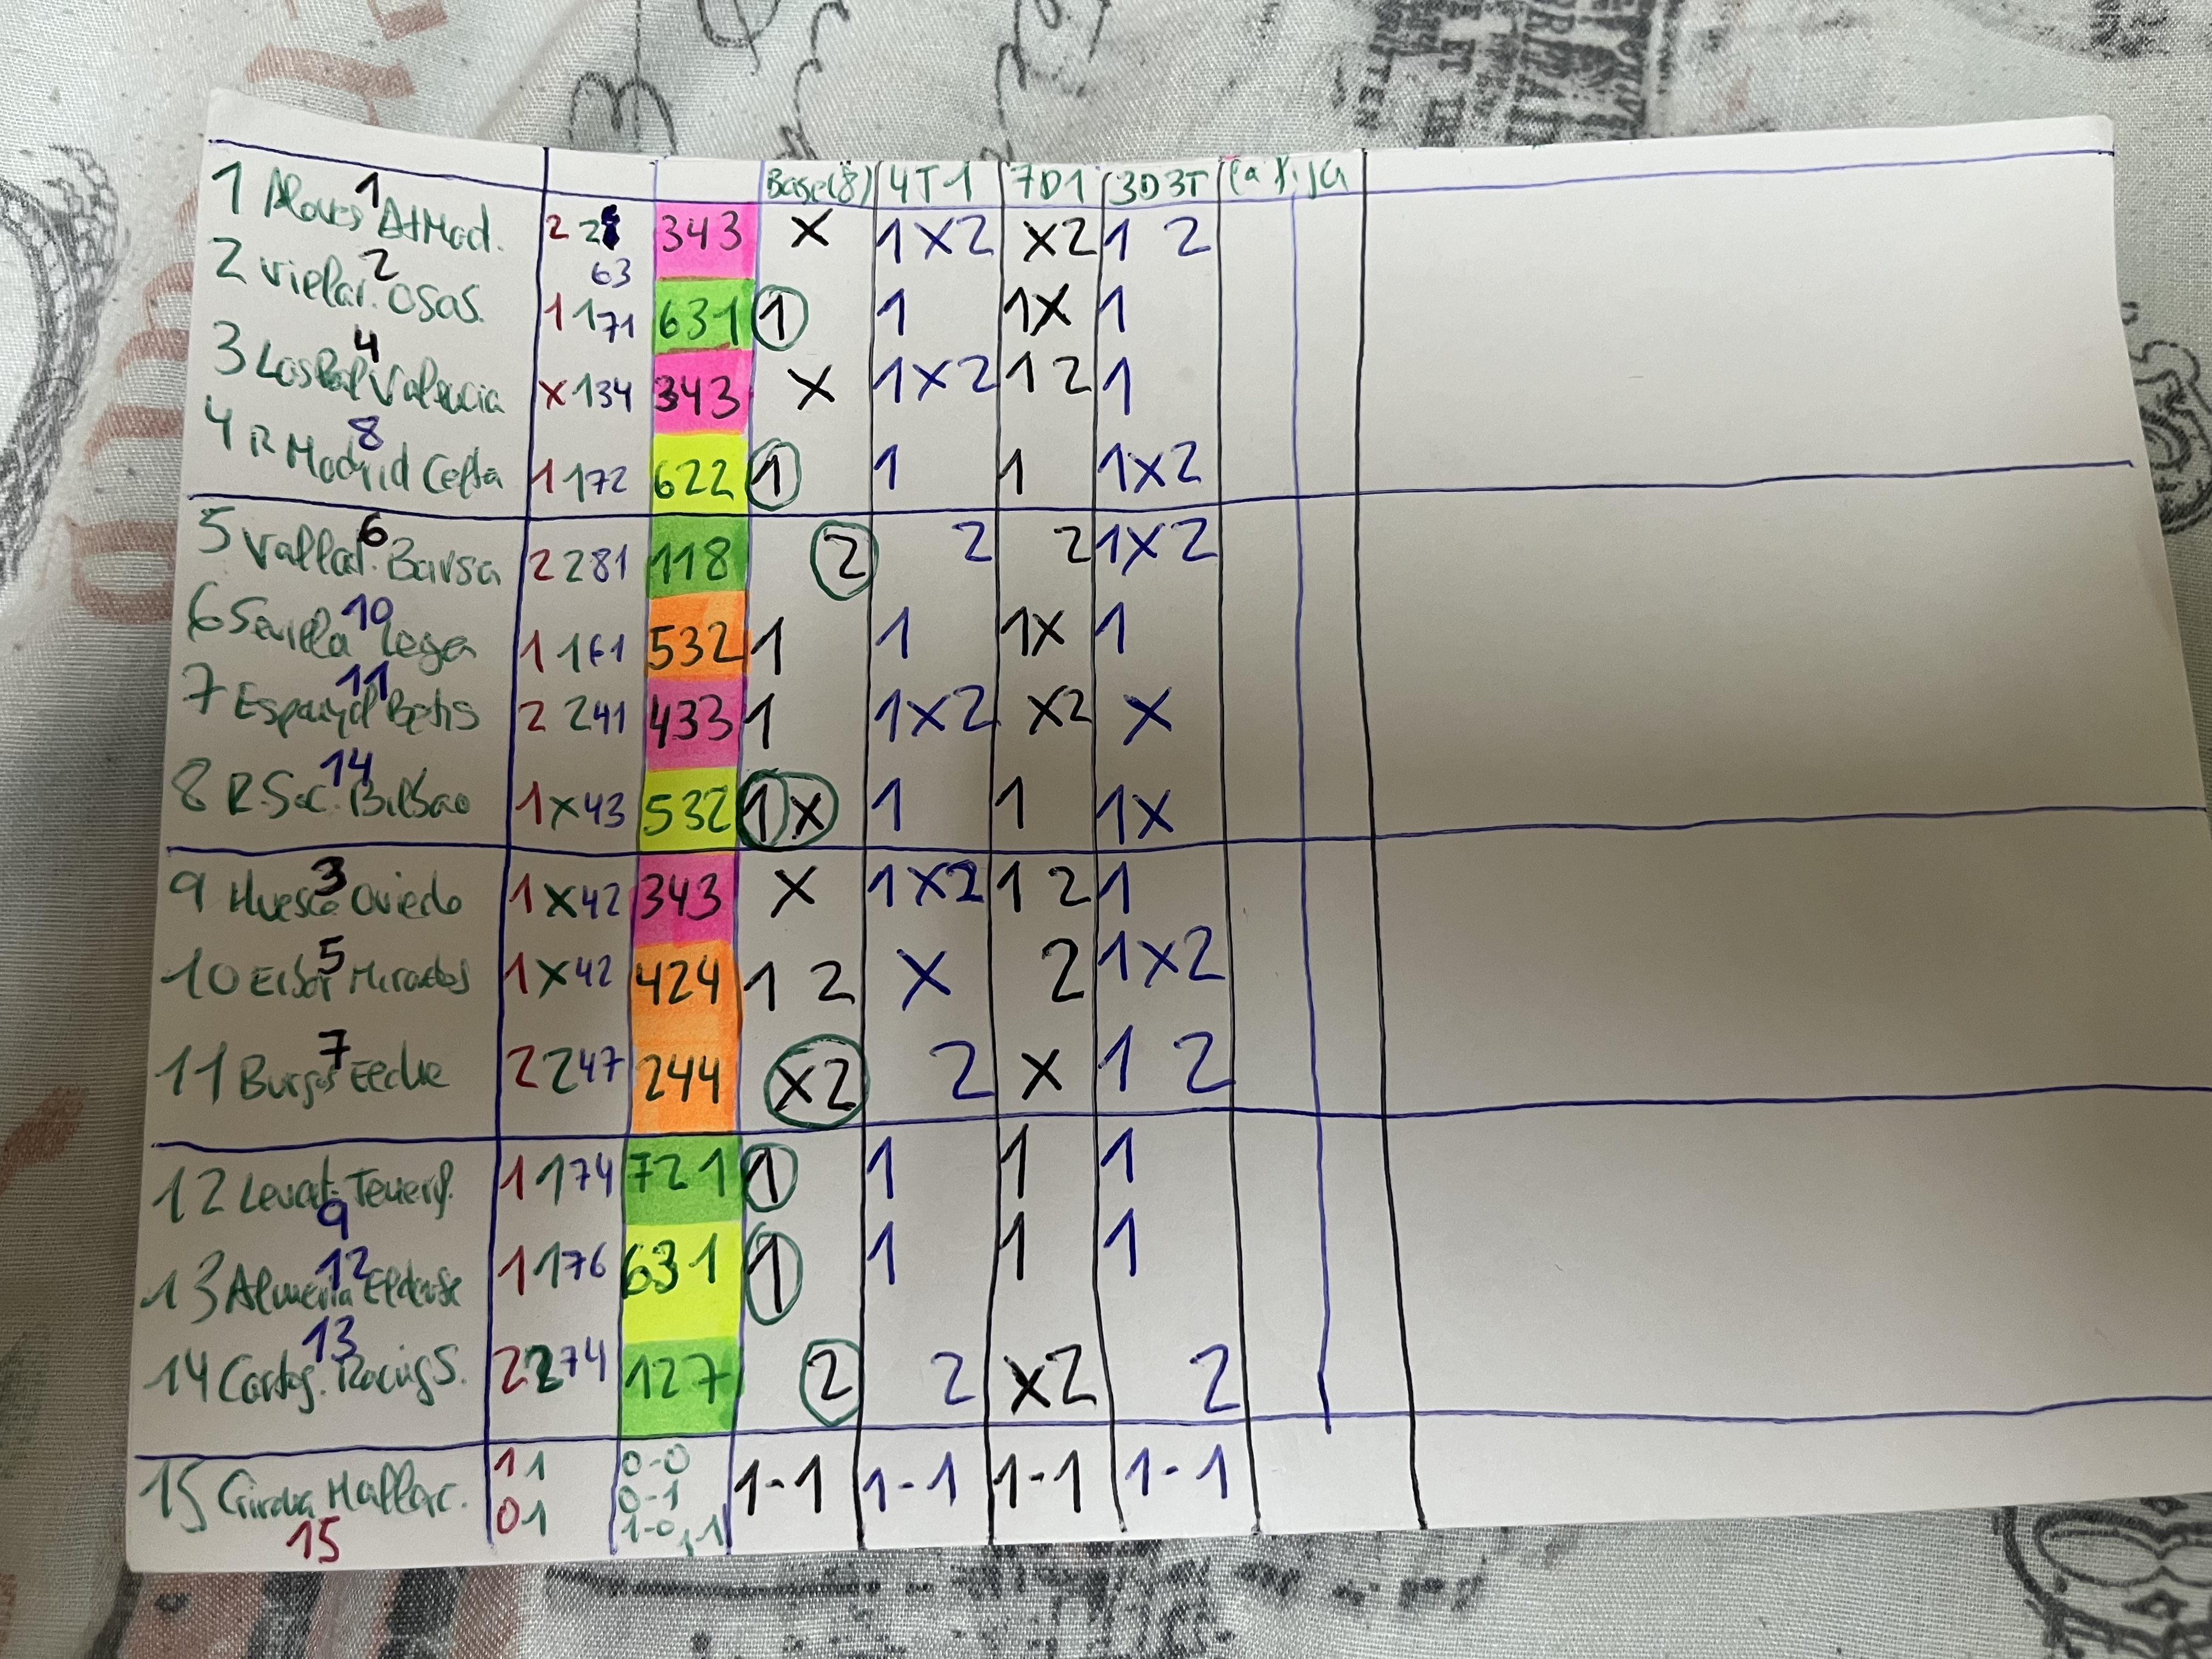 Base(8) 4T1 7D1 3D3T
1 Alaves AtMad. 1 2 2 63 343 X 1X2 X2 1 2
2 Villar. Osas. 2 1 171 631 1 1 1X 1
3 LasPal Valencia 4 X 134 343 X 1X2 1 2 1
4 R Madrid Celta 8 1 172 622 1 1 1 1X2
5 Vallad. Barsa 6 2 281 118 2 2 2 1X2
6 Sevilla Legan 10 1 161 532 1 1 1X 1
7 Espanyol Betis 11 2 241 433 1 1X2 X2 X
8 R.Soc. Bilbao 14 1 X43 532 1X 1 1 1X
9 Huesca Oviedo 3 1 X42 343 X 1X2 1 2 1
10 Eibar Mirandes 5 1 X42 424 1 2 X 2 1X2
11 Burgos Elche 7 2 247 244 X2 2 X 1 2
12 Levat. Tenerif. 9 1 174 721 1 1 1 1
13 Almeria Eldense 12 1 176 631 1 1 1 1
14 Cartag. Racing S. 13 2 274 127 2 2 X2 2
15 Girona Mallorc. 15 1 1 0-0 1-1 1-1 1-1 1-1
01 0-1
1-0